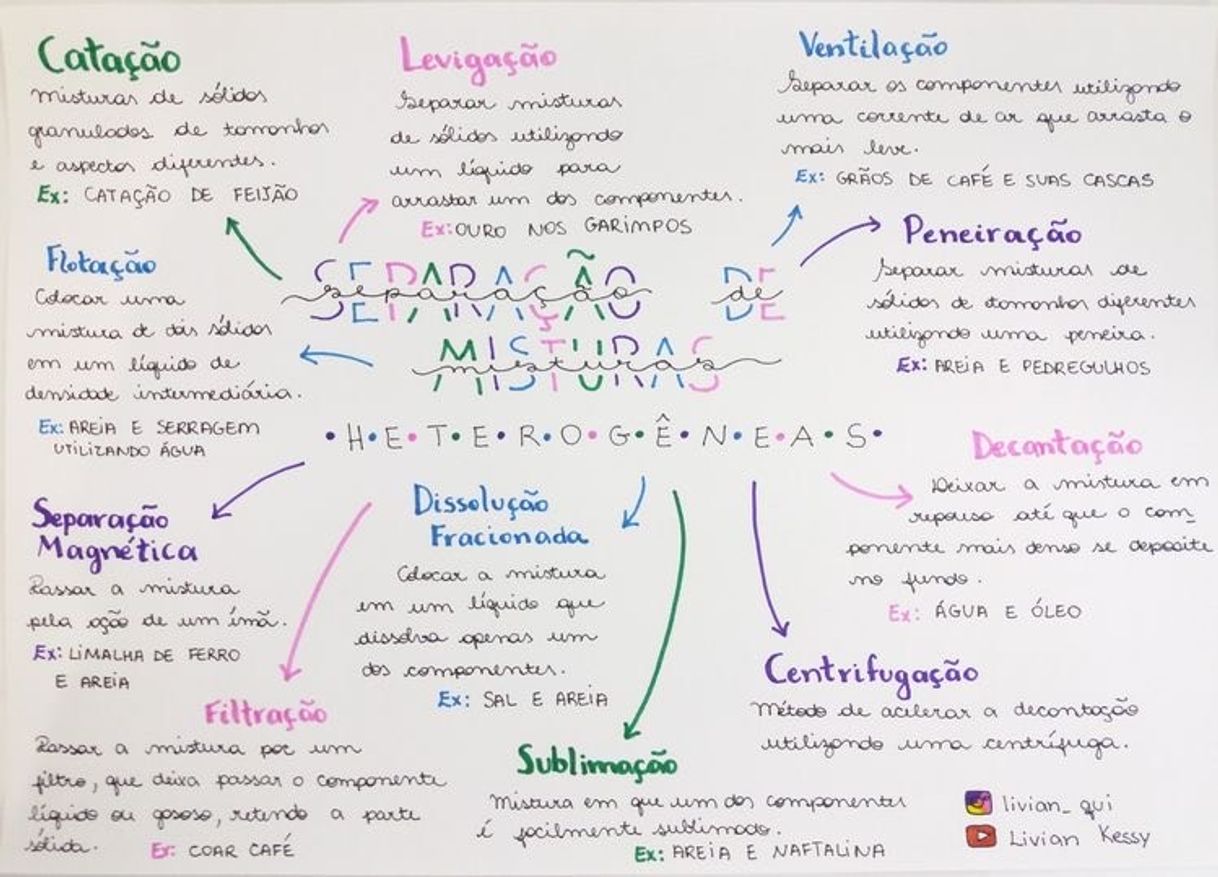 Catação
Misturas de sólidos
granulados de tamanhos
e aspectos diferentes.
Ex: CATAÇÃO DE FEIJÃO
Levigação
Separar misturas
de sólidos utilizando
um líquido para
arrastar um dos componentes.
Ex: OURO NOS GARIMPOS
Ventilação
Separar os componentes utilizando
uma corrente de ar que arrasta o
mais leve.
Ex: GRÃOS DE CAFÉ E SUAS CASCAS
Peneiração
Separar misturas de
sólidos de tamanhos diferentes
utilizando uma peneira.
Ex: AREIA E PEDREGULHOS
Flotação
Colocar uma
mistura de dois sólidos
em um líquido de
densidade intermediária.
Ex: AREIA E SERRAGEM
UTILIZANDO ÁGUA
SEPARAÇÃO DE
separação de
MISTURAS
misturas
•H•E•T•E•R•O•G•Ê•N•E•A•S•
Decantação
Deixar a mistura em
repouso até que o com_
ponente mais denso se deposite
no fundo.
Ex: ÁGUA E ÓLEO
Separação
Magnética
Passar a mistura
pela ação de um ímã.
Ex: LIMALHA DE FERRO
E AREIA
Dissolução
Fracionada
Colocar a mistura
em um líquido que
dissolva apenas um
dos componentes.
Ex: SAL E AREIA
Centrifugação
Método de acelerar a decantação
utilizando uma centrífuga.
Filtração
Passar a mistura por um
filtro, que deixa passar o componente
líquido ou gasoso, retendo a parte
sólida.
Ex: COAR CAFÉ
Sublimação
Mistura em que um dos componentes
é facilmente sublimado.
Ex: AREIA E NAFTALINA
livian_qui
Livian Kessy